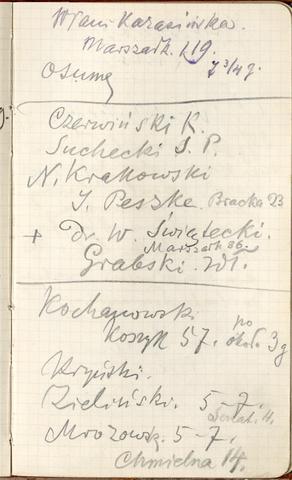 Karasińska.
Marszałk. 119.
7 3/4 g.
Czerwiński K.
Suchecki S. P.
N. Krakowski
J. Peszke. Bracka 23
+ Dr. W. Świątecki.
Marszałk 86.
Grabski. Wł.
Kochanowski
Koszyk 57. po
około 3 g
Kryński.
Zieliński. 5-7.
Mrozows. 5-7.
Chmielna 14.